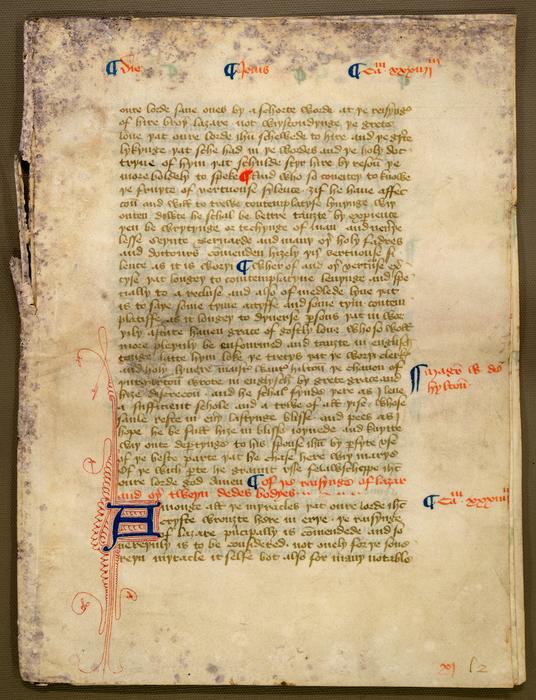 ¶ die ¶ Jouis ¶ Caᵐ xxxiijᵐ
oure lorde saue ones by a schorte worde at ye reisynge
of hire broy lazare not wiystondynge ye grete
loue yat oure lorde ihu schewede to hire and ye grete
lykynge yat sche had in ye wordes and ye holy doc
tryne of hym yat schulde styr hire by resoun ye
more boldely to speke ¶ And who so coueitey to knowe
ye fruyte of vertuouse sylence · ȝif he haue affec
con and will to trewe contemplatyfe lyuynge wiy
outen dowte he schal be bettre tauȝte by experience
yen be wrytynge or techynge of man · and neuyr
lesse Seynte Bernarde and many oy holy fadres
and doctoures comenden hizely yis vertuouse si
lence as it is woryi ¶ Wher of and oy vertuose ex
cyse yat longey to contemplatyue lyuynge and spe
cially to a recluse · and also of medlede lyue yat
is to saye some tyme actyffe · and some tym contem
platyffe · as it longey to dyuerse persons yat in wor
yly astate hauen grace of gostly loue · whoso wole
more pleynly be enfourmed and tauȝte in englisch
tonge · latte hym loke ye tretys yat ye woryi clerk
and holy lyuere maistr wautr hilton ye chanon of
thurgarton wrote in englysch by grete grace and
hize discrecoun · and he schal fynde yere as I leue
a sufficient schole and a trewe of alle yise · Whose
saule reste in euerlastynge blisse · and pees as I
hope he be full hize in blisse ioynede and knytte
wiy oute departynge to his spouse ihu by parfyte vse
of ye beste parte yat he chase here wiy marye
Of ye wich parte he graunte vsse felawschippe ihu
oure lorde god Amen ¶ Of ye reisynge of lazar
and oy tweyn dedes bodyes
Amonge alle ye myracles yat oure lorde ihu
cryste wrouȝte here in erye · ye reisynge
of lazare principally is comendede · and so
uereynly is to be considered · not onely for ye soue
reyn myracle it selfe bot also for many notable
¶ Magr W de
hyltoun
¶ Caᵐ xxxiiijᵐ
xj 62